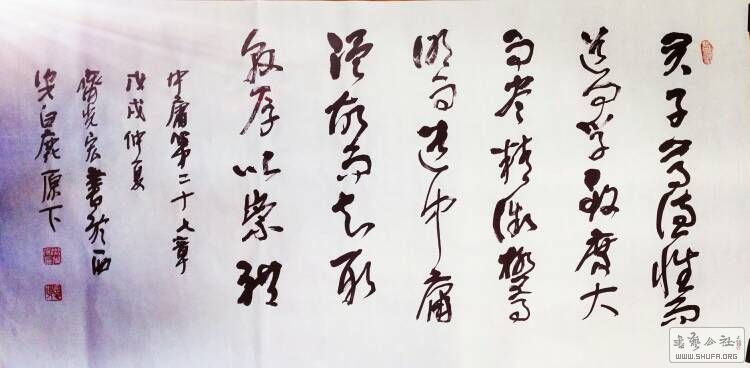 君子尊德性而
道问学致廣大
而尽精微極高
明而道中庸
温故而知新
敦厚以崇禮
中庸第二十七章
戊戌仲夏
光宏書於西
安白鹿原下
书艺公社
WWW.SHUFA.ORG